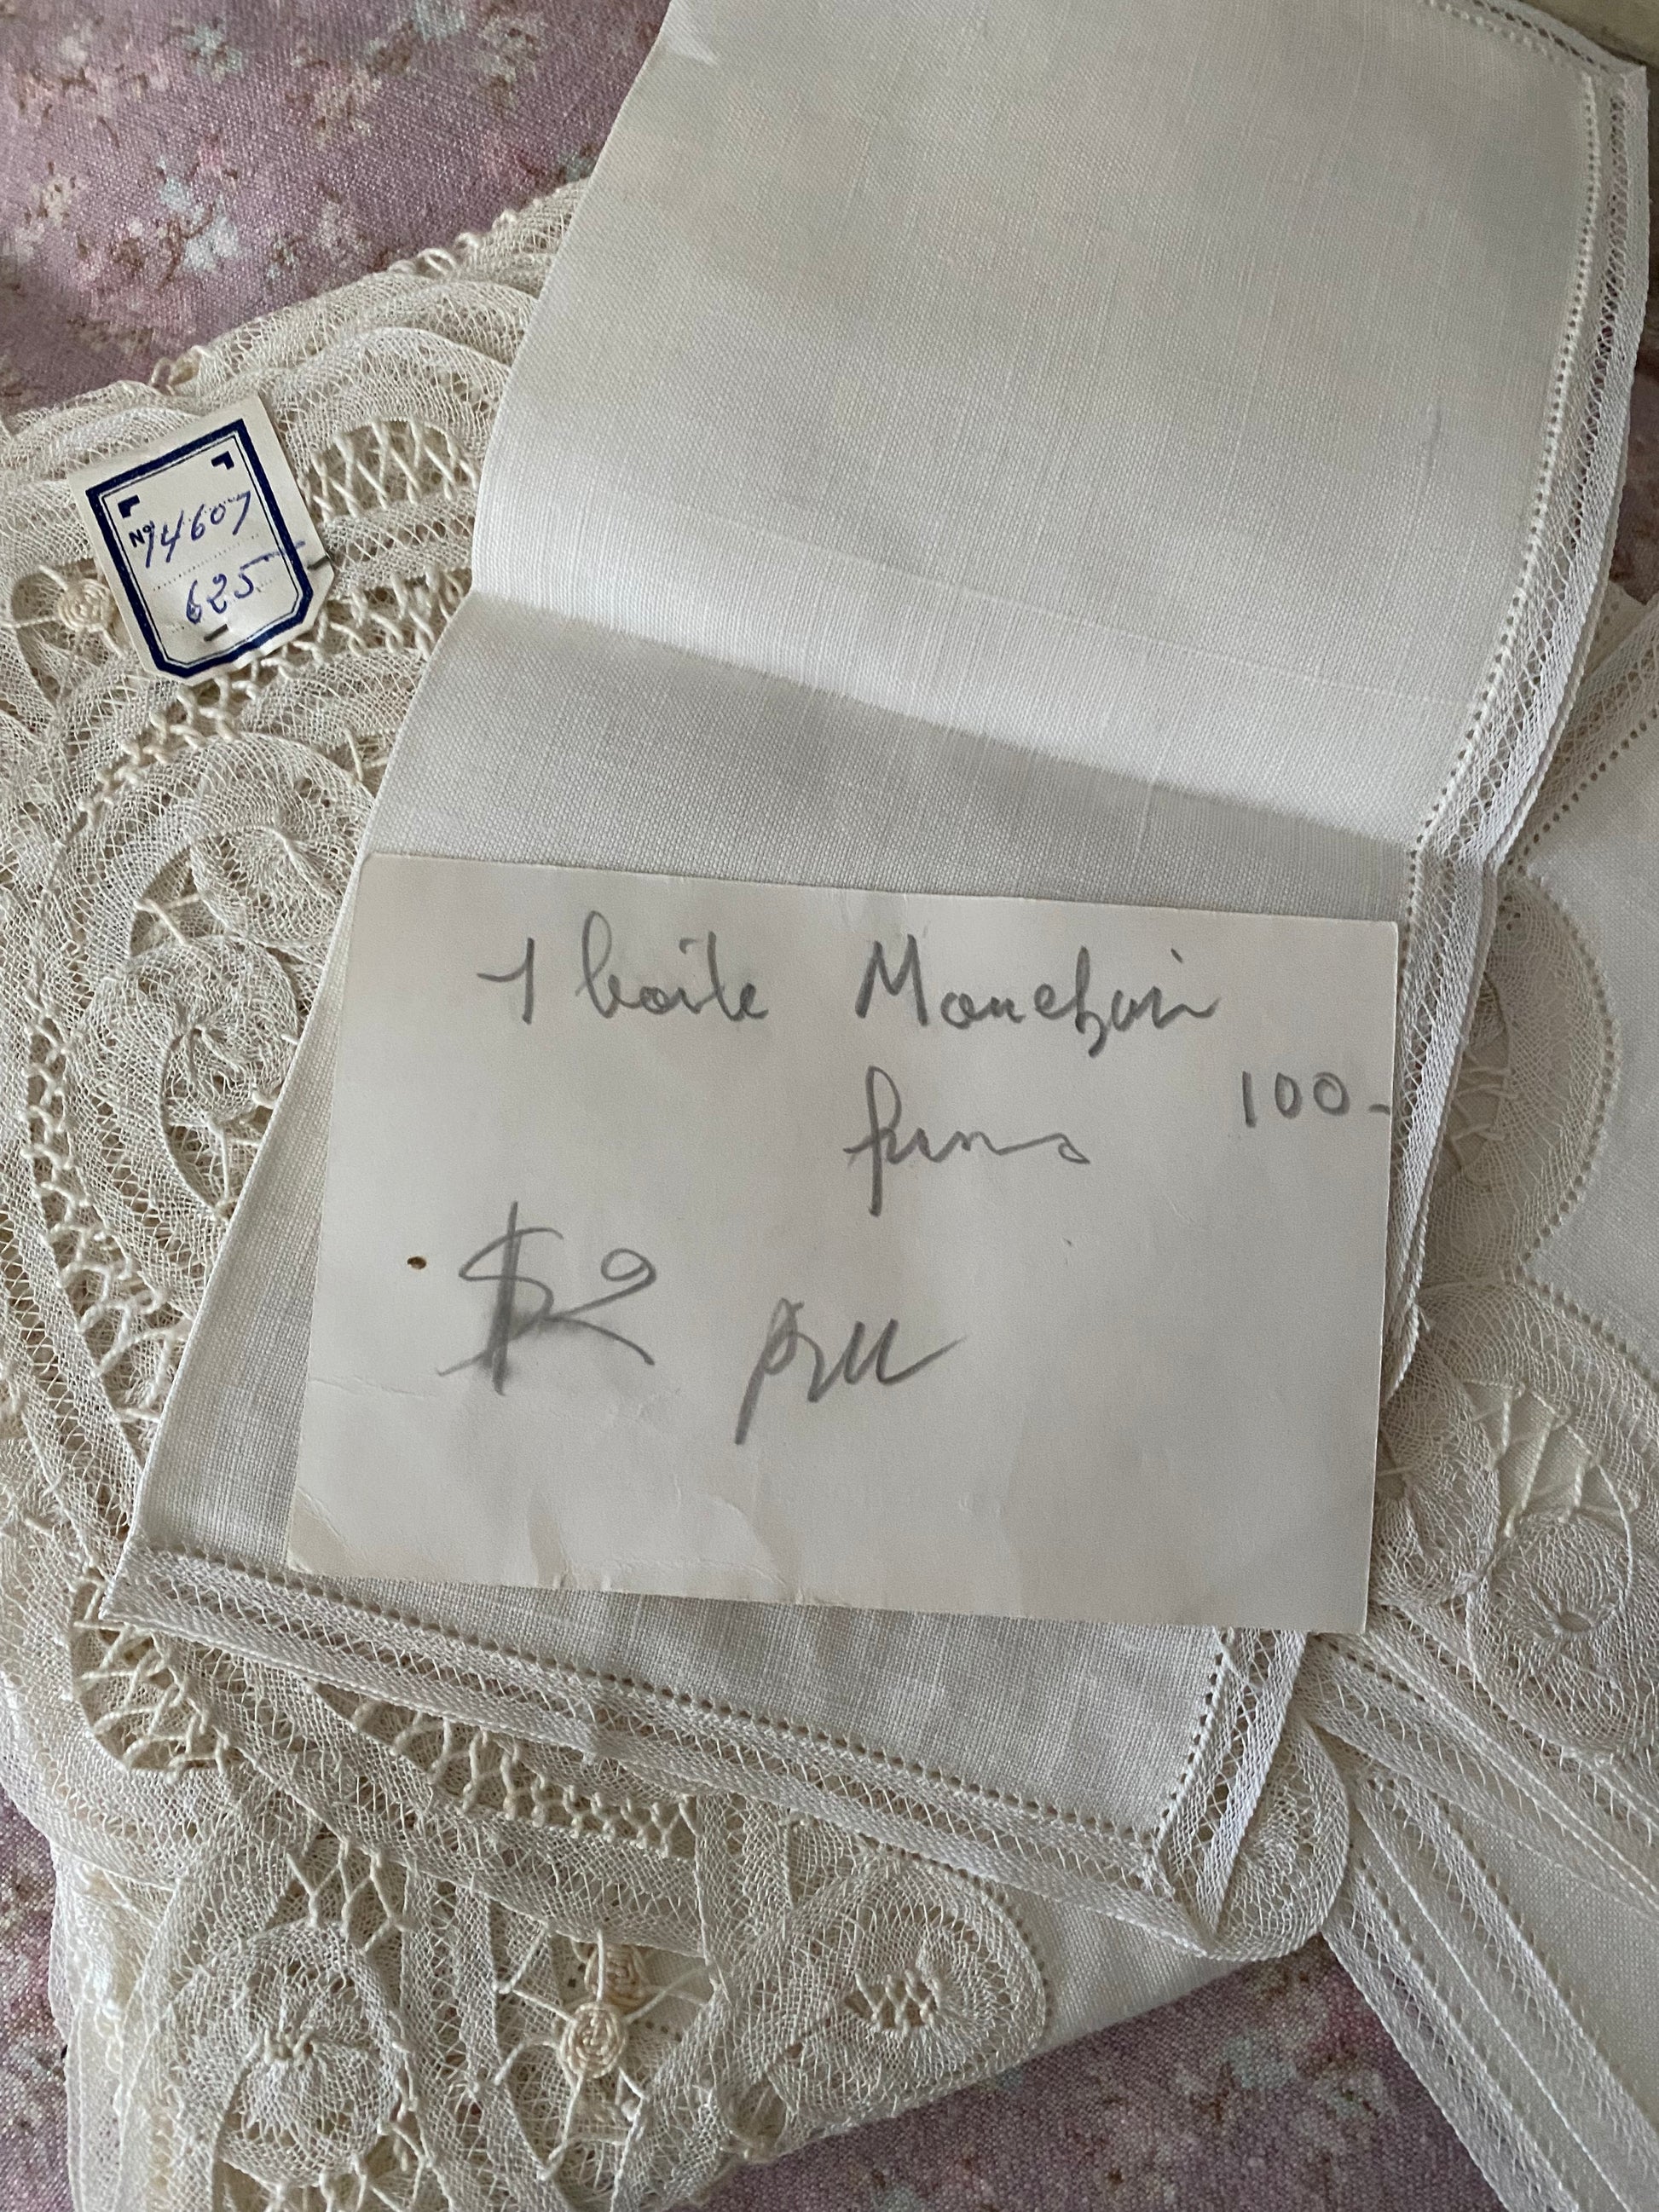 Nº 14607
625
1 boîte Mouchoir
fins 100-
$2